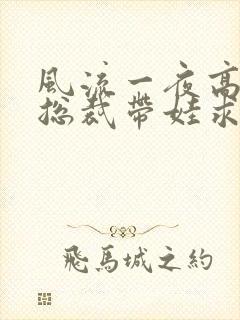 風流一夜高
總裁帶娃求
飛馬城之約